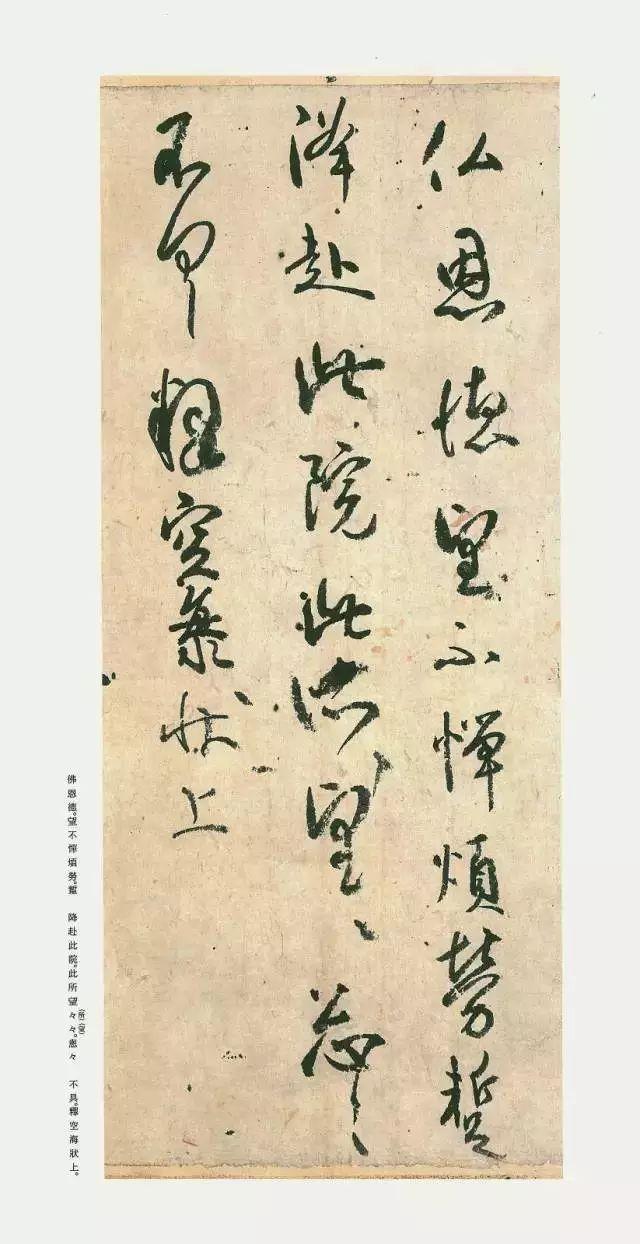 仏恩徳望不憚煩勞蹔
降赴此院此所望〻忩〻
不具釋空海状上
佛恩德。望不憚煩勞。蹔 降赴此院。此所望々々。忩々 不具。釋空海狀上。
(所)(望)